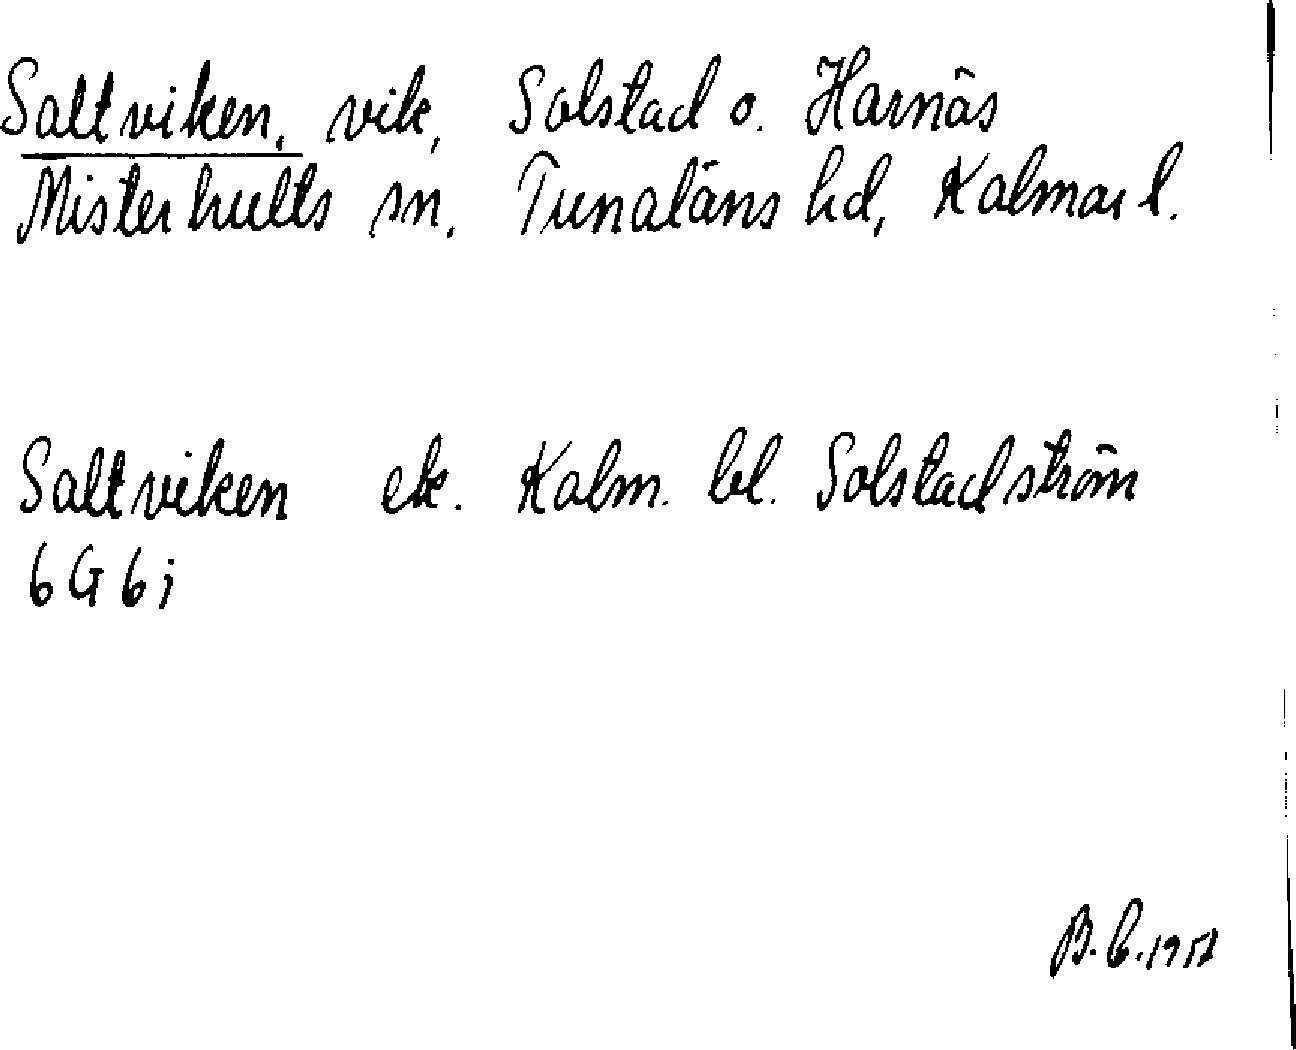 Saltviken, vik, Solstad o. Harnäs
Misterhults sn. Tunaläns hd, Kalmar l.
Saltviken ek. Kalm. bl. Solstadström
6G6i
B.C.